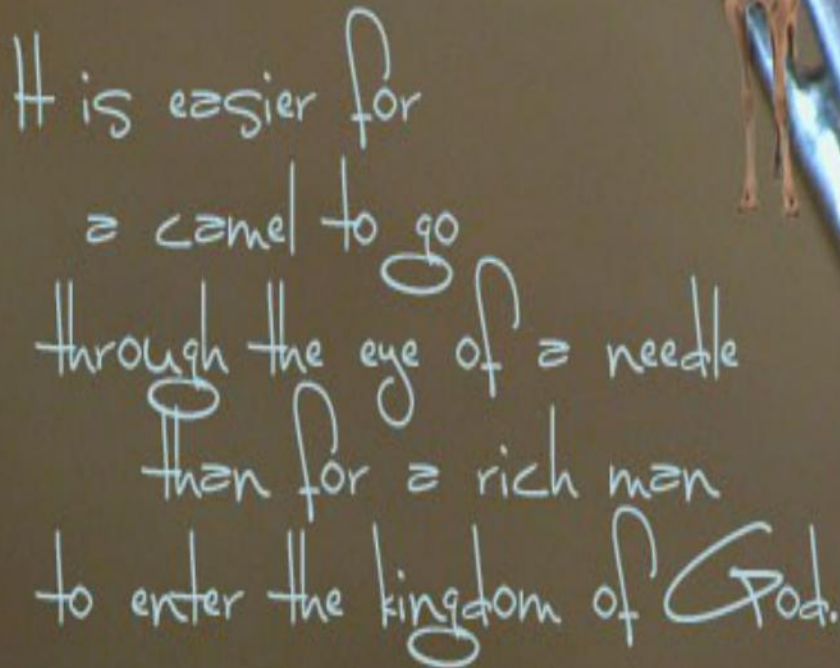 It is easier for
a camel to go
through the eye of a needle
than for a rich man
to enter the kingdom of God.